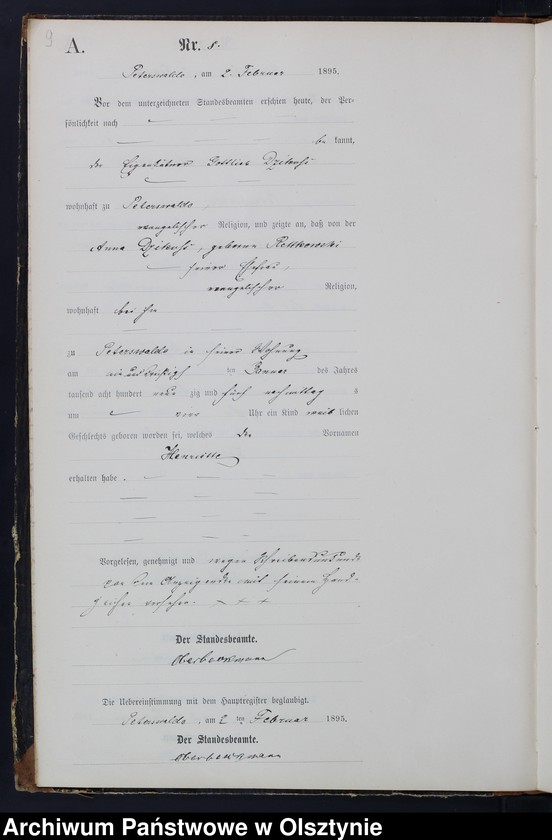 9
A.
Nr. 8.
Peterswalde, am 2. Februar 1895.
Vor dem unterzeichneten Standesbeamten erschien heute, der Per-
sönlichkeit nach
be kannt,
der Eigenkätner Gottlieb
wohnhaft zu Peterswalde,
evangelischer Religion, und zeigte an, daß von der
Anna geborene
seiner Ehefrau,
evangelischer Religion,
wohnhaft bei ihm
zu Peterswalde in seiner Wohnung
am ein und dreißigsten Januar des Jahres
tausend acht hundert neun zig und fünf nachmittag s
um vier Uhr ein Kind weib lichen
Geschlechts geboren worden sei, welches den Vornamen
Henriette
erhalten habe.
Vorgelesen, genehmigt und wegen Schreibensunkunde
von dem Anzeigenden mit seinem Hand-
zeichen versehen. + + +
Der Standesbeamte.
Die Uebereinstimmung mit dem Hauptregister beglaubigt.
Peterswalde, am 2 ten Februar 1895.
Der Standesbeamte.
Archiwum Państwowe w Olsztynie